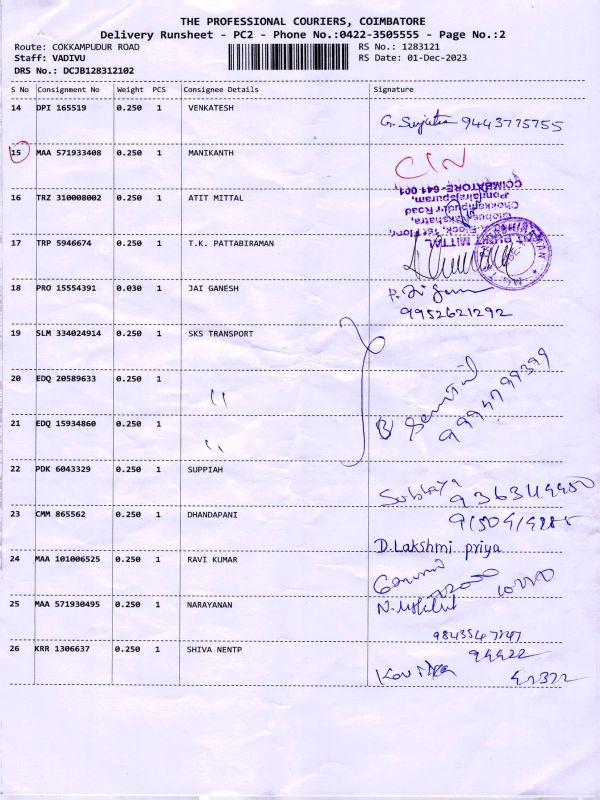 THE PROFESSIONAL COURIERS, COIMBATORE
Delivery Runsheet - PC2 - Phone No.:0422-3505555 - Page No.:2
Route: COKKAMPUDUR ROAD RS No.: 1283121
Staff: VADIVU RS Date: 01-Dec-2023
DRS No.: DCJB128312102
S No Consignment No Weight PCS Consignee Details Signature
14 DPI 165519 0.250 1 VENKATESH
9443775755
15 MAA 571933408 0.250 1 MANIKANTH
16 TRZ 310008002 0.250 1 ATIT MITTAL
COIMBATORE-641 001.
Chokkampudur Road
17 TRP 5946674 0.250 1 T.K. PATTABIRAMAN
18 PRO 15554391 0.030 1 JAI GANESH
9952621292
19 SLM 334024914 0.250 1 SKS TRANSPORT
20 EDQ 20589633 0.250 1 "
21 EDQ 15934860 0.250 1 "
22 PDK 6043329 0.250 1 SUPPIAH
23 CMM 865562 0.250 1 DHANDAPANI
D.Lakshmi priya
24 MAA 101006525 0.250 1 RAVI KUMAR
25 MAA 571930495 0.250 1 NARAYANAN
26 KRR 1306637 0.250 1 SHIVA NENTP